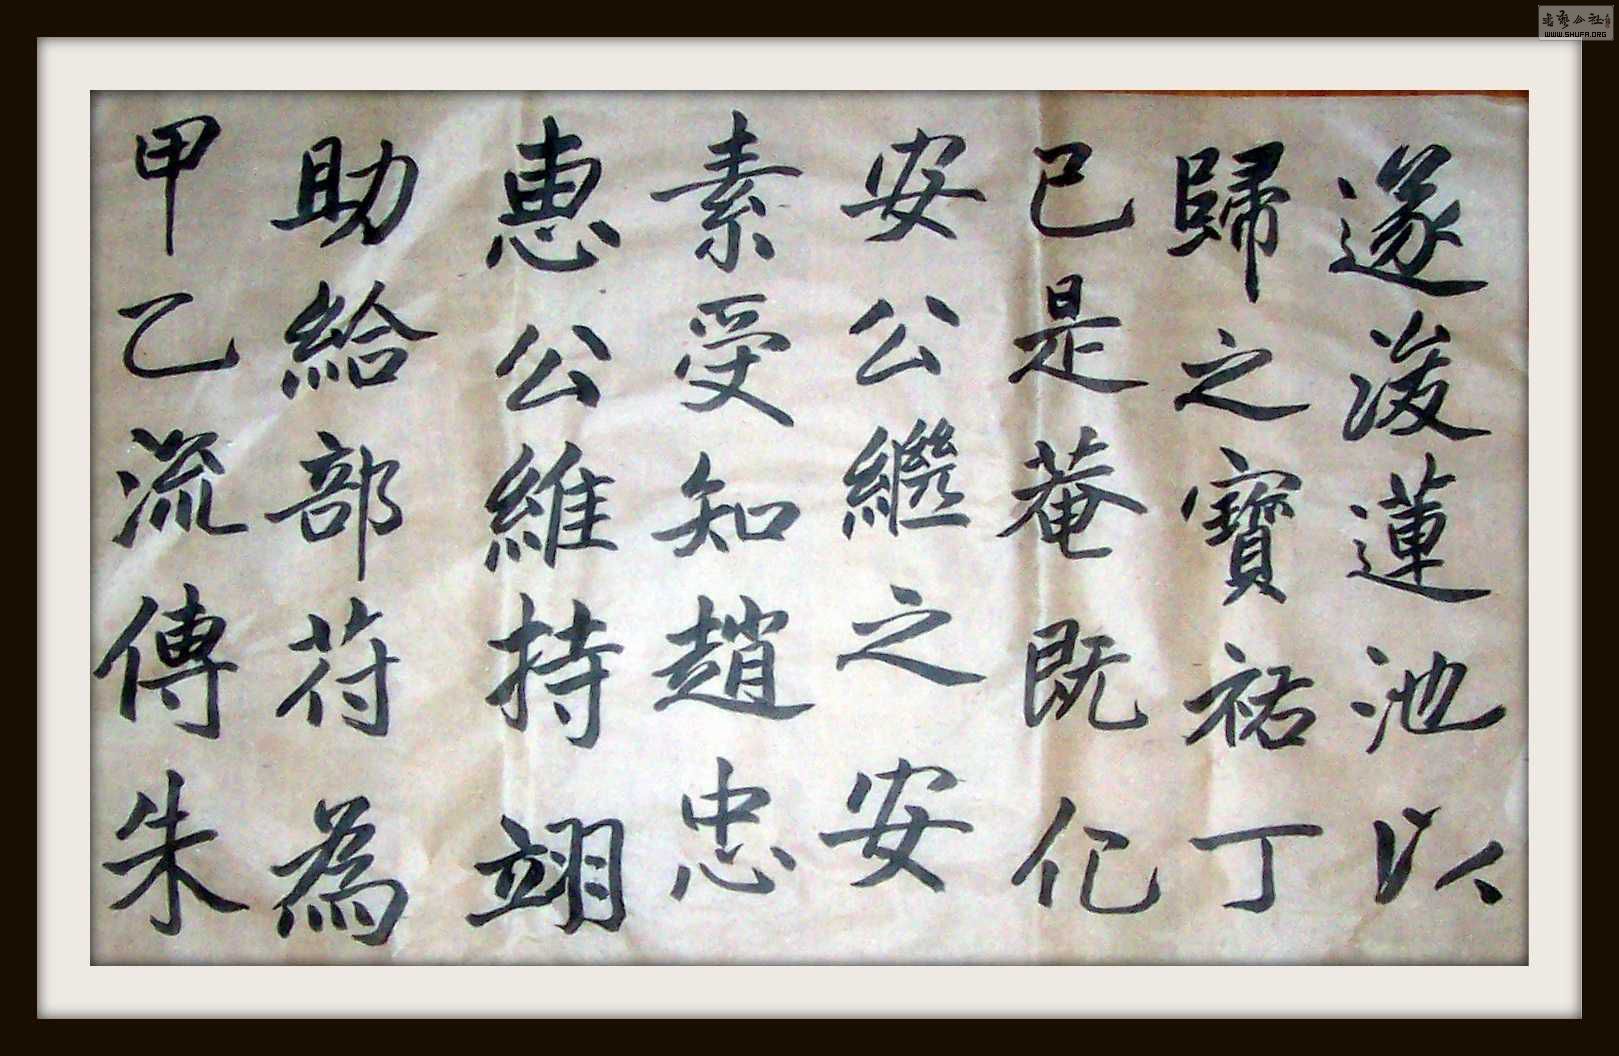 遂浚蓮池以
歸之寶祐丁
已是菴既化
安公繼之安
素受知趙忠
惠公維持翊
助給部苻為
甲乙流傳朱
WWW.SHUFA.ORG